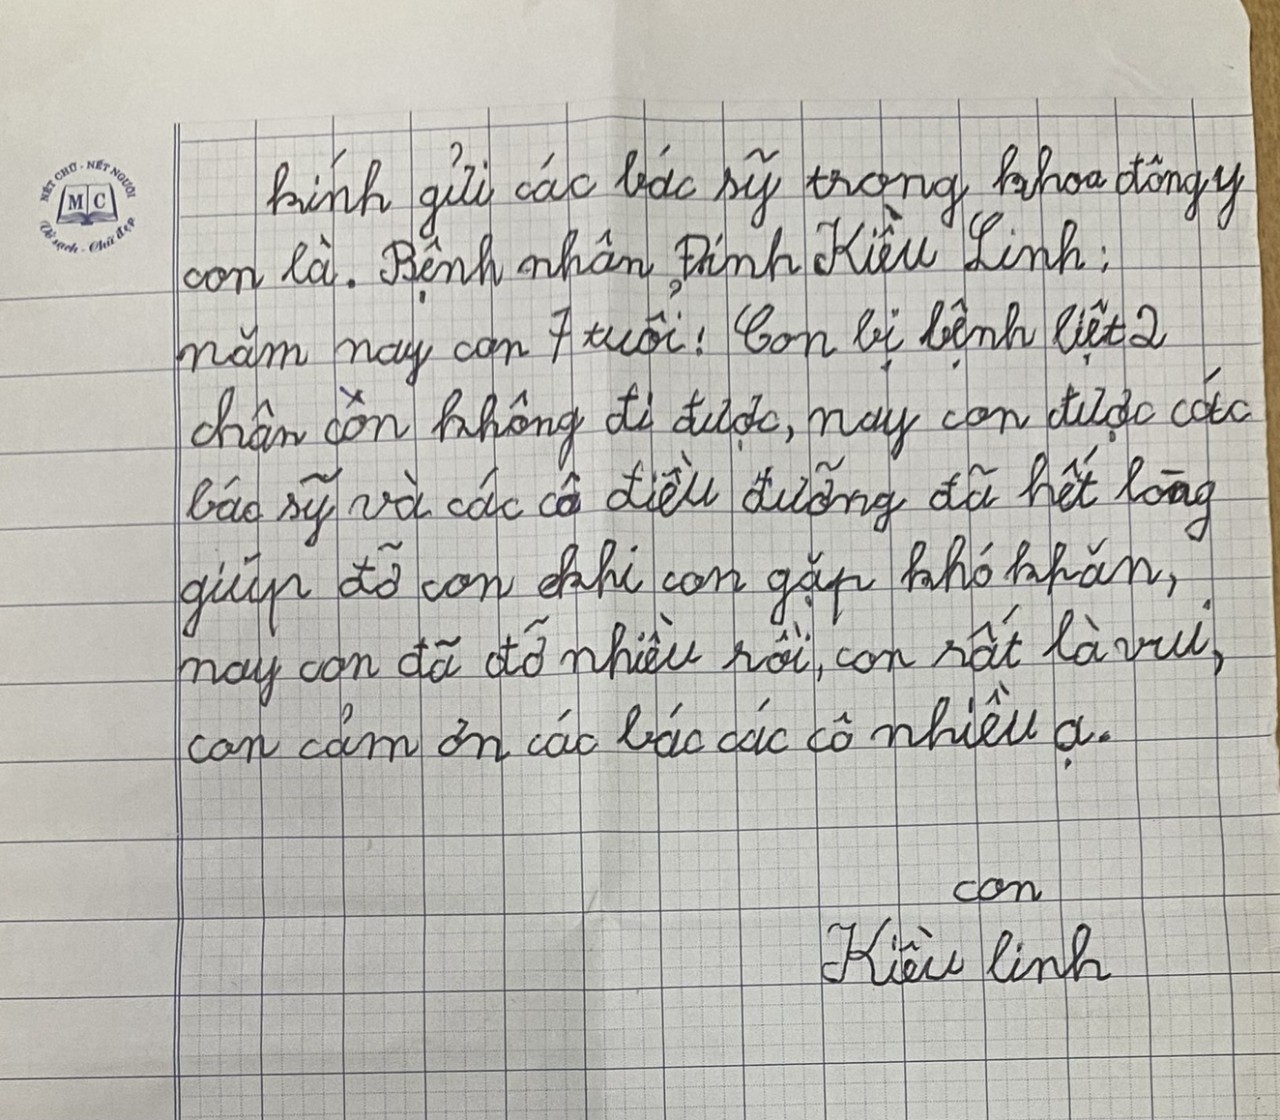 NÉT CHỮ - NẾT NGƯỜI
MC
Vở sạch - Chữ đẹp
kính gửi các bác sỹ trong khoa đông y
con là. Bệnh nhân Đinh Kiều Linh;
năm nay con 7 tuổi! Con bị bệnh liệt 2
chân còn không đi được, nay con được các
bác sỹ và các cô điều dưỡng đã hết lòng
giúp đỡ con khi con gặp khó khăn,
nay con đã đỡ nhiều rồi, con rất là vui,
con cảm ơn các bác các cô nhiều ạ.
con
Kiều linh